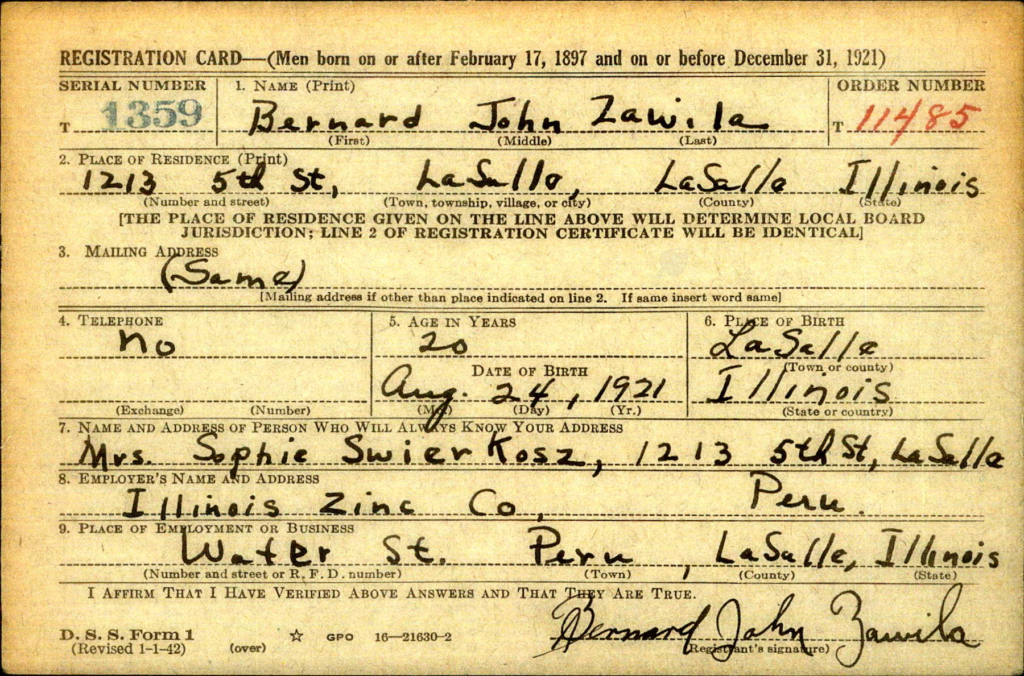 REGISTRATION CARD—(Men born on or after February 17, 1897 and on or before December 31, 1921)
SERIAL NUMBER 1. NAME (Print) ORDER NUMBER
T 1359 Bernard John Zawila T 11485
(First) (Middle) (Last)
2. PLACE OF RESIDENCE (Print)
1213 5th St, LaSalle, LaSalle Illinois
(Number and street) (Town, township, village, or city) (County) (State)
[THE PLACE OF RESIDENCE GIVEN ON THE LINE ABOVE WILL DETERMINE LOCAL BOARD
JURISDICTION; LINE 2 OF REGISTRATION CERTIFICATE WILL BE IDENTICAL]
3. MAILING ADDRESS
(Same)
[Mailing address if other than place indicated on line 2. If same insert word same]
4. TELEPHONE 5. AGE IN YEARS 6. PLACE OF BIRTH
no 20 LaSalle
DATE OF BIRTH (Town or county)
Aug. 24, 1921 Illinois
(Exchange) (Number) (Mo.) (Day) (Yr.) (State or country)
7. NAME AND ADDRESS OF PERSON WHO WILL ALWAYS KNOW YOUR ADDRESS
Mrs. Sophie Swierkosz, 1213 5th St, LaSalle
8. EMPLOYER'S NAME AND ADDRESS
Illinois Zinc Co, Peru.
9. PLACE OF EMPLOYMENT OR BUSINESS
Water St. Peru, LaSalle, Illinois
(Number and street or R. F. D. number) (Town) (County) (State)
I AFFIRM THAT I HAVE VERIFIED ABOVE ANSWERS AND THAT THEY ARE TRUE.
D. S. S. Form 1 ☆ GPO 16—21630-2 Bernard John Zawila
(Revised 1-1-42) (over) (Registrant's signature)